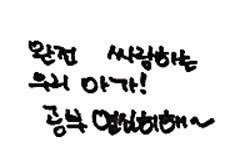 완전 싸랑하는
우리 아가!
공부 열심히해~